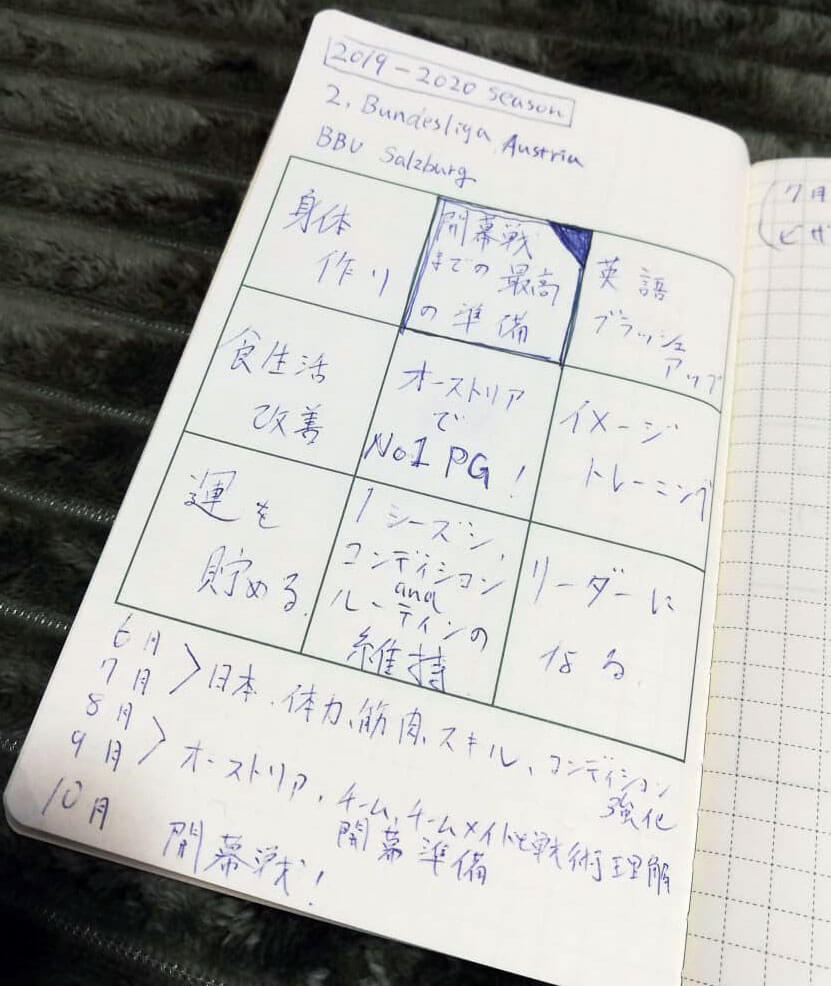 2019-2020 season
2. Bundesliga Austria
BBU Salzburg
身体
作り
開幕戦
までの最高
の準備
英語
ブラッシュ
アップ
食生活
改善
オーストリア
で
No1 PG!
イメージ
トレーニング
運を
貯める.
1シーズン,
コンディション
and
ルーティンの
維持
リーダーに
なる.
6月
7月 > 日本. 体力、筋肉、スキル、コンディション
強化
8月
9月 > オーストリア. チーム、チームメイトと戦術理解
開幕準備
10月 開幕戦!
7月
ビザ